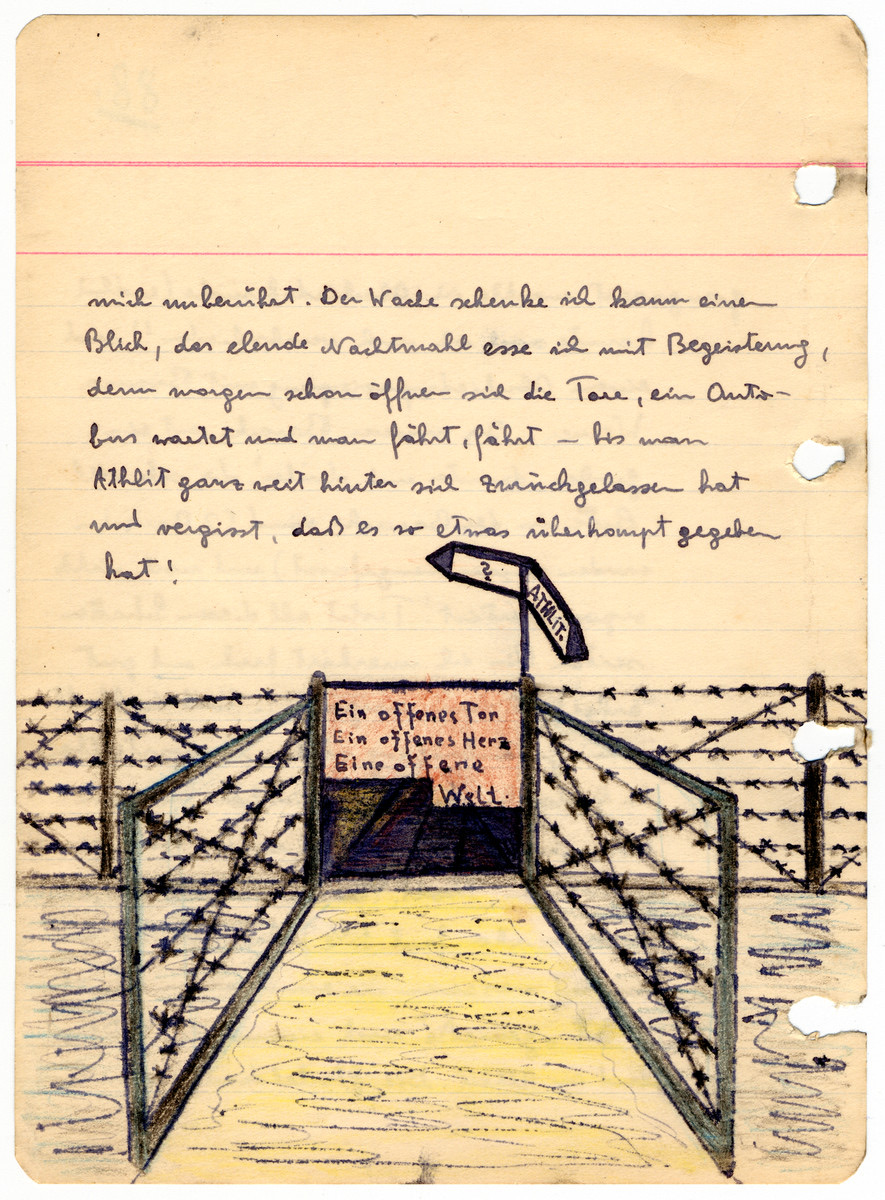 mich unberührt. Der Wache schenke ich kaum einen
Blick, das elende Nachtmahl esse ich mit Begeisterung,
denn morgen schon öffnen sich die Tore, ein Auto-
bus wartet und man fährt, fährt – bis man
Athlit ganz weit hinter sich zurückgelassen hat
und vergisst, daß es so etwas überhaupt gegeben
hat!
?
ATHLIT.
Ein offenes Tor
Ein offenes Herz
Eine offene
Welt.